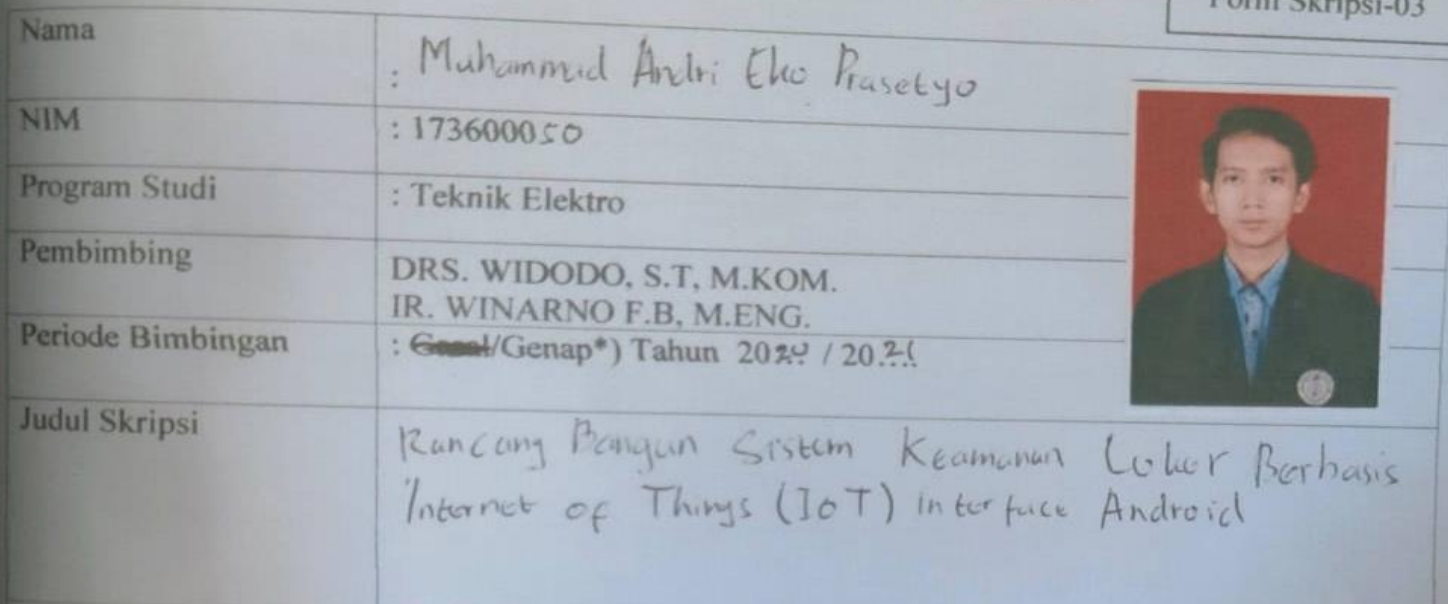 Form Skripsi-03
Nama : Muhammad Andri Eko Prasetyo
NIM : 173600050
Program Studi : Teknik Elektro
Pembimbing DRS. WIDODO, S.T, M.KOM.
IR. WINARNO F.B, M.ENG.
Periode Bimbingan : Gasal/Genap*) Tahun 2020 / 2021
Judul Skripsi Rancang Bangun Sistem Keamanan Loker Berbasis
Internet of Things (IoT) interface Android